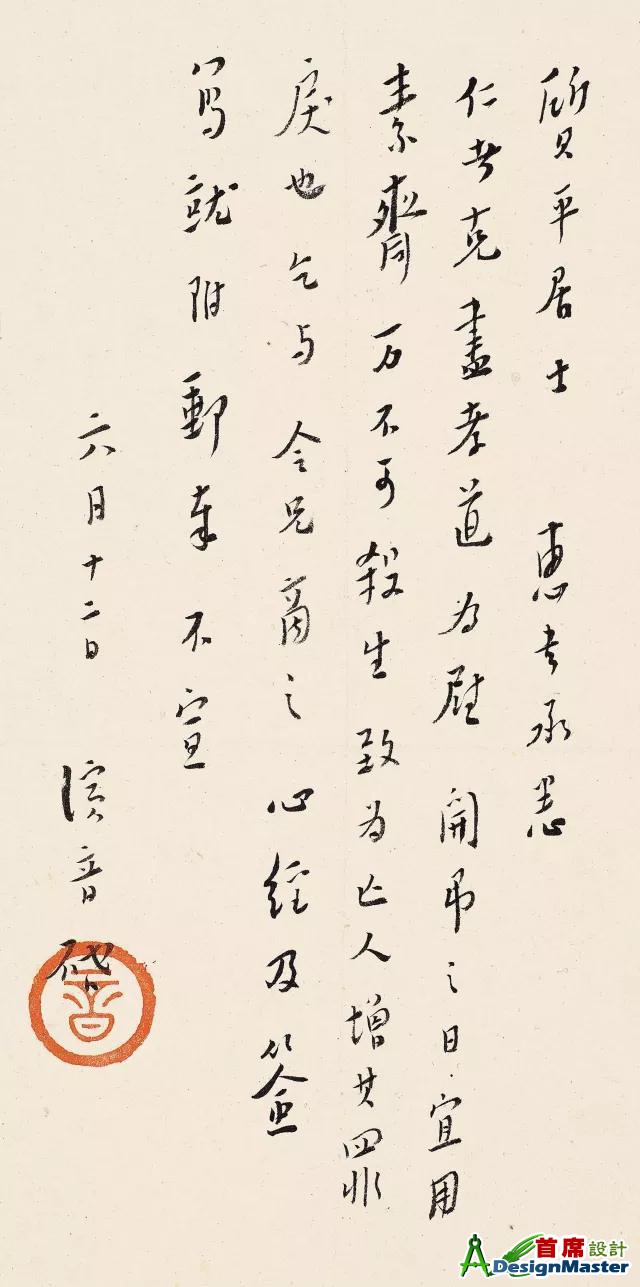 質平居士 惠書承悉
仁者克盡孝道為慰開弔之日宜用
素齋万不可殺生致為亡人增其罪
戾也乞与令兄商之心經及簽
寫就附郵奉不宣
六月十二日 演音啓
音
首席設計
DesignMaster